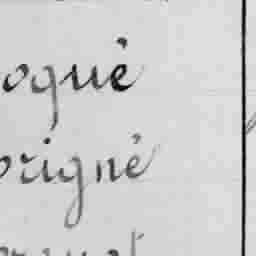 oqué
origné